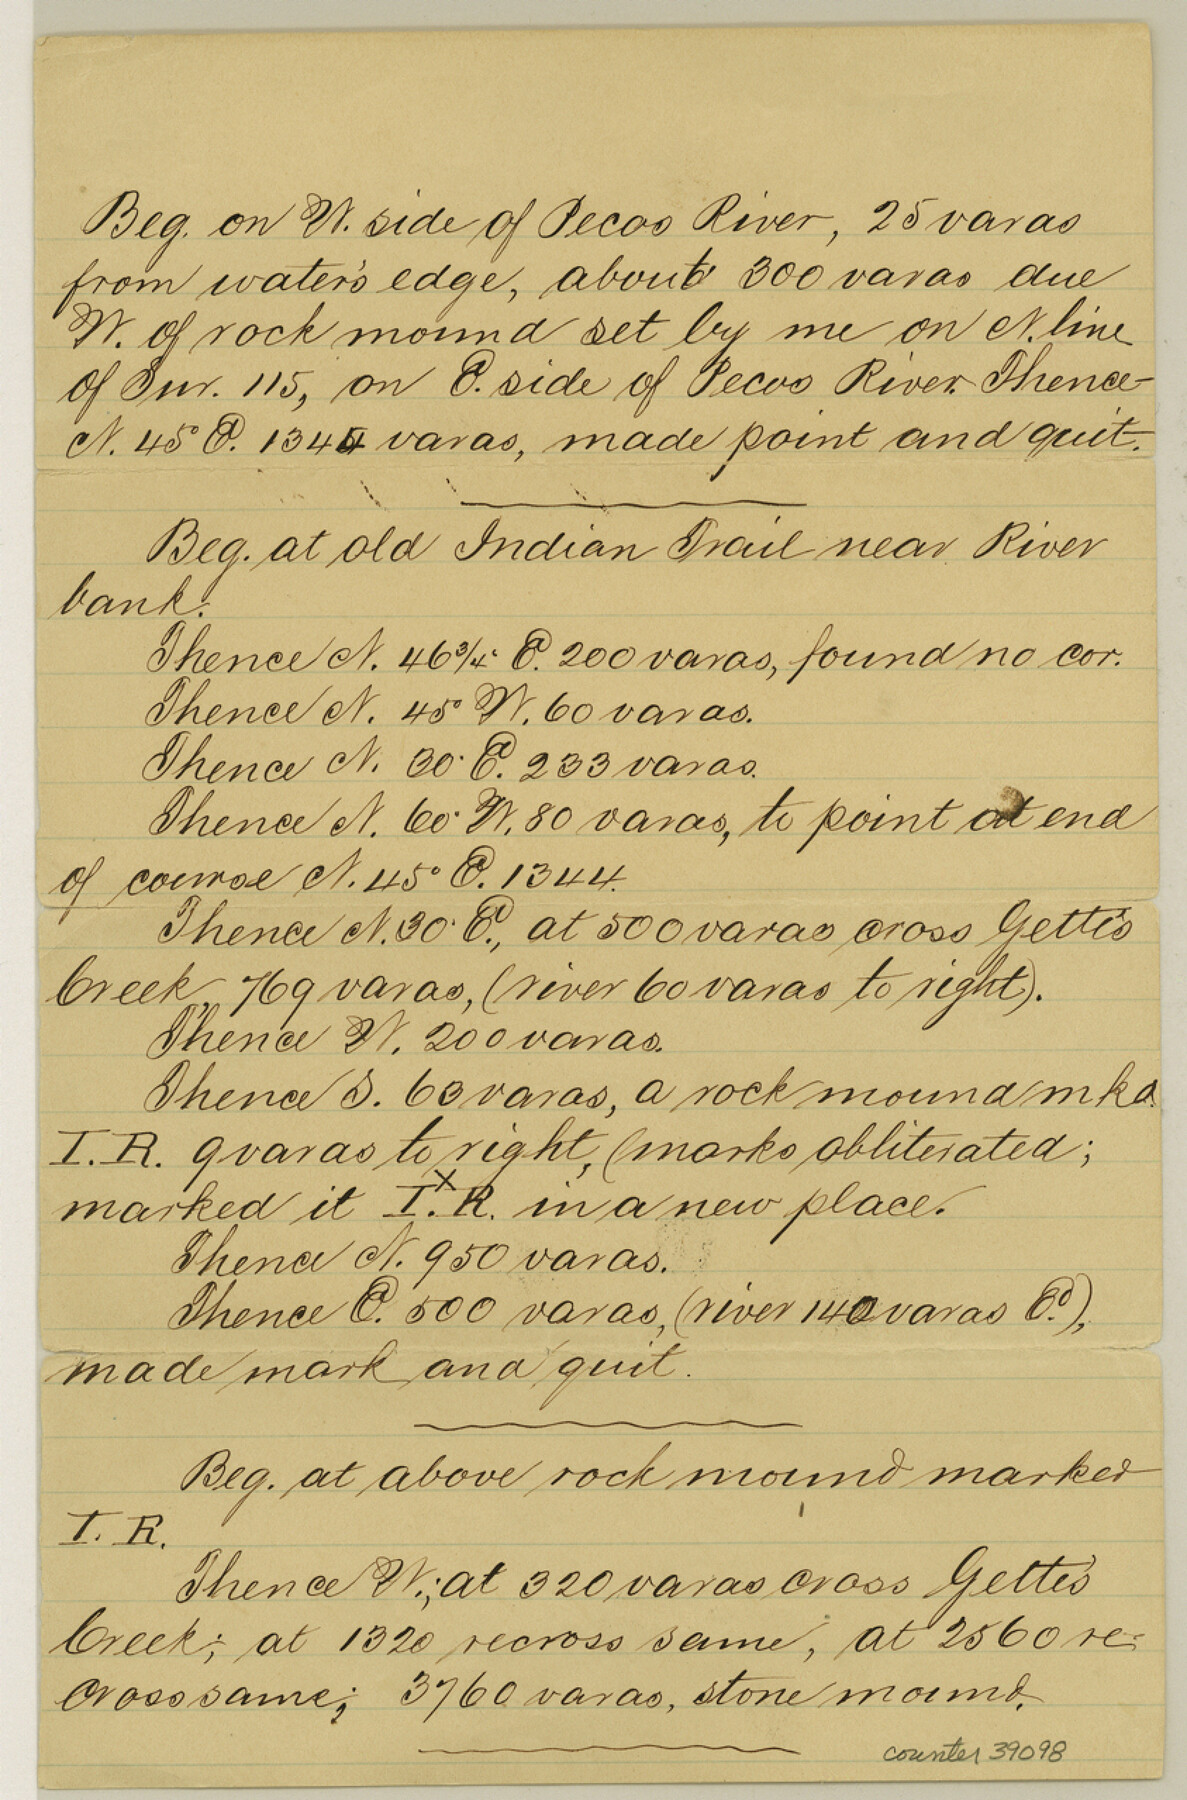 Beg. on W. side of Pecos River, 25 varas
from water's edge, about 300 varas due
W. of rock mound set by me on N. line
of Sur. 115, on E. side of Pecos River. Thence
N. 45° E. 1344 varas, made point and quit.
Beg. at old Indian Trail near River
bank.
Thence N. 46¾° E. 200 varas, found no cor.
Thence N. 45° W. 60 varas.
Thence N. 30° E. 233 varas.
Thence N. 60° W. 80 varas, to point at end
of course N. 45° E. 1344.
Thence N. 30° E., at 500 varas cross Gettis
Creek, 769 varas, (river 60 varas to right).
Thence W. 200 varas.
Thence S. 63 varas, a rock mound mkd.
I. R. 9 varas to right, (marks obliterated;
marked it I.ˣ R. in a new place.
Thence N. 950 varas.
Thence E. 500 varas, (river 140 varas E.),
made mark and quit.
Beg. at above rock mound marked
I. R.
Thence W.; at 320 varas cross Gettis
Creek; at 1320 recross same, at 2560 re-
cross same; 3760 varas, stone mound.
counter 39098